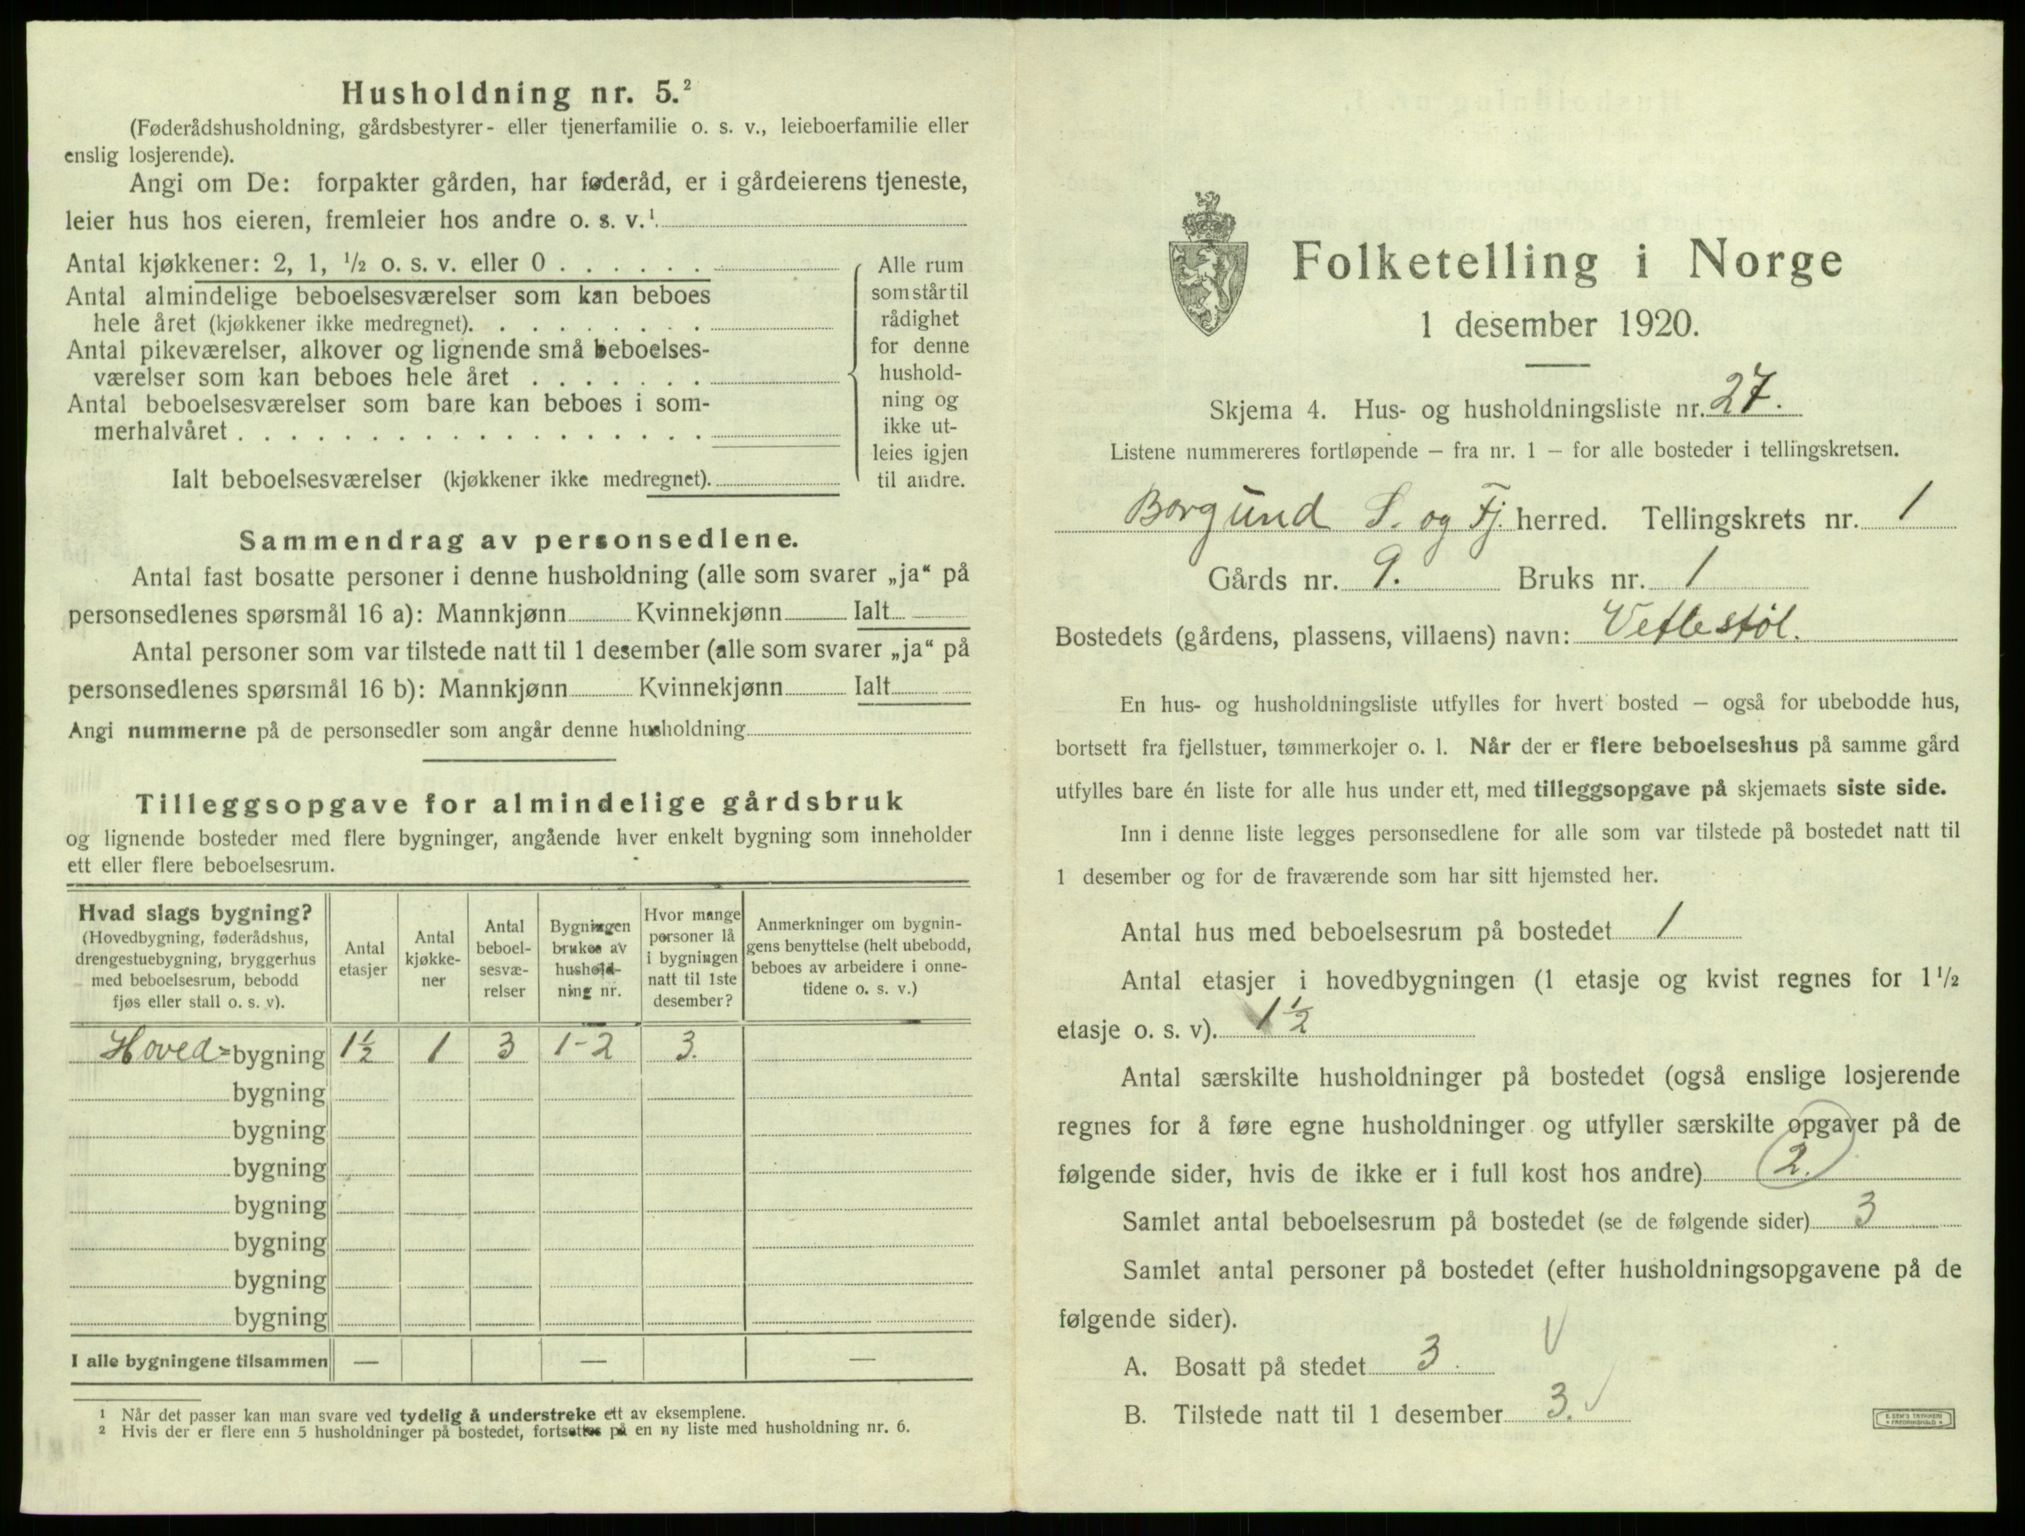 Husholdning nr. 5.²
(Føderådshusholdning, gårdsbestyrer- eller tjenerfamilie o. s. v., leieboerfamilie eller
enslig losjerende).
Angi om De: forpakter gården, har føderåd, er i gårdeierens tjeneste,
leier hus hos eieren, fremleier hos andre o. s. v.¹
Antal kjøkkener: 2, 1, ½ o. s. v. eller 0 . . . . . .
Antal almindelige beboelsesværelser som kan beboes
hele året (kjøkkener ikke medregnet). . . . . . . . .
Antal pikeværelser, alkover og lignende små beboelses-
værelser som kan beboes hele året . . . . . . .
Antal beboelsesværelser som bare kan beboes i som-
merhalvåret . . . . . . . . . . . . . . . . . .
Ialt beboelsesværelser (kjøkkener ikke medregnet).
Alle rum
som står til
rådighet
for denne
hushold-
ning og
ikke ut-
leies igjen
til andre.
Sammendrag av personsedlene.
Antal fast bosatte personer i denne husholdning (alle som svarer „ja“ på
personsedlenes spørsmål 16 a): Mannkjønn Kvinnekjønn Ialt
Antal personer som var tilstede natt til 1 desember (alle som svarer „ja“ på
personsedlenes spørsmål 16 b): Mannkjønn Kvinnekjønn Ialt
Angi nummerne på de personsedler som angår denne husholdning
Tilleggsopgave for almindelige gårdsbruk
og lignende bosteder med flere bygninger, angående hver enkelt bygning som inneholder
ett eller flere beboelsesrum.
Hvad slags bygning?
(Hovedbygning, føderådshus,
drengestuebygning, bryggerhus
med beboelsesrum, bebodd
fjøs eller stall o. s. v).
Antal
etasjer
Antal
kjøkke-
ner
Antal
beboel-
sesvæ-
relser
Bygningen
brukes av
hushold-
ning nr.
Hvor mange
personer lå
i bygningen
natt til 1ste
desember?
Anmerkninger om bygnin-
gens benyttelse (helt ubebodd,
beboes av arbeidere i onne-
tidene o. s. v.)
Hoved- bygning 1½ 1 3 1-2 3.
bygning
bygning
bygning
bygning
bygning
bygning
bygning
I alle bygningene tilsammen — — —
¹ Når det passer kan man svare ved tydelig å understreke ett av eksemplene.
² Hvis der er flere enn 5 husholdninger på bostedet, fortsettes på en ny liste med husholdning nr. 6.
Folketelling i Norge
1 desember 1920.
Skjema 4. Hus- og husholdningsliste nr. 27.
Listene nummereres fortløpende – fra nr. 1 – for alle bosteder i tellingskretsen.
Borgund S. og Fj. herred. Tellingskrets nr. 1
Gårds nr. 9. Bruks nr. 1
Bostedets (gårdens, plassens, villaens) navn: Vetlestøl.
En hus- og husholdningsliste utfylles for hvert bosted – også for ubebodde hus,
bortsett fra fjellstuer, tømmerkojer o. l. Når der er flere beboelseshus på samme gård
utfylles bare én liste for alle hus under ett, med tilleggsopgave på skjemaets siste side.
Inn i denne liste legges personsedlene for alle som var tilstede på bostedet natt til
1 desember og for de fraværende som har sitt hjemsted her.
Antal hus med beboelsesrum på bostedet 1
Antal etasjer i hovedbygningen (1 etasje og kvist regnes for 1½
etasje o. s. v). 1½
Antal særskilte husholdninger på bostedet (også enslige losjerende
regnes for å føre egne husholdninger og utfyller særskilte opgaver på de
følgende sider, hvis de ikke er i full kost hos andre) 2.
Samlet antal beboelsesrum på bostedet (se de følgende sider) 3
Samlet antal personer på bostedet (efter husholdningsopgavene på de
følgende sider).
A. Bosatt på stedet 3.
B. Tilstede natt til 1 desember 3.